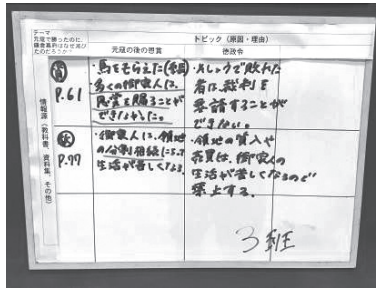 テーマ
元寇で勝ったのに、
鎌倉幕府はなぜ滅び
たのだろうか?
トピック(原因・理由)
元寇の後の恩賞
徳政令
情報源(教科書、資料集、その他)
P.61
・馬をそらえた(竹崎)
多くの御家人は、
恩賞を賜ることが
できなかった。
・さいしょうで敗れた
者は、裁判を
要請することが
できない。
P.77
・御家人は、領地
の分割相続によって
生活が苦しくなる。
・領地の質入や
売買は、御家人の
生活が苦しくなるので
禁止する。
3班